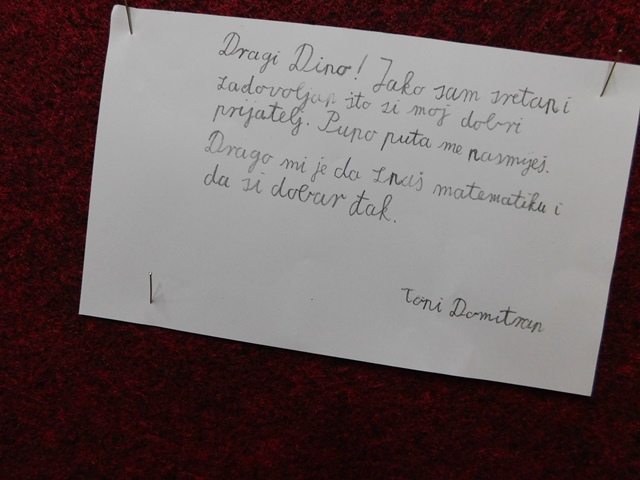 Dragi Dino! Jako sam sretan i
zadovoljan što si moj dobri
prijatelj. Puno puta me nasmiješ.
Drago mi je da znaš matematiku i
da si dobar đak.
Toni Domitran